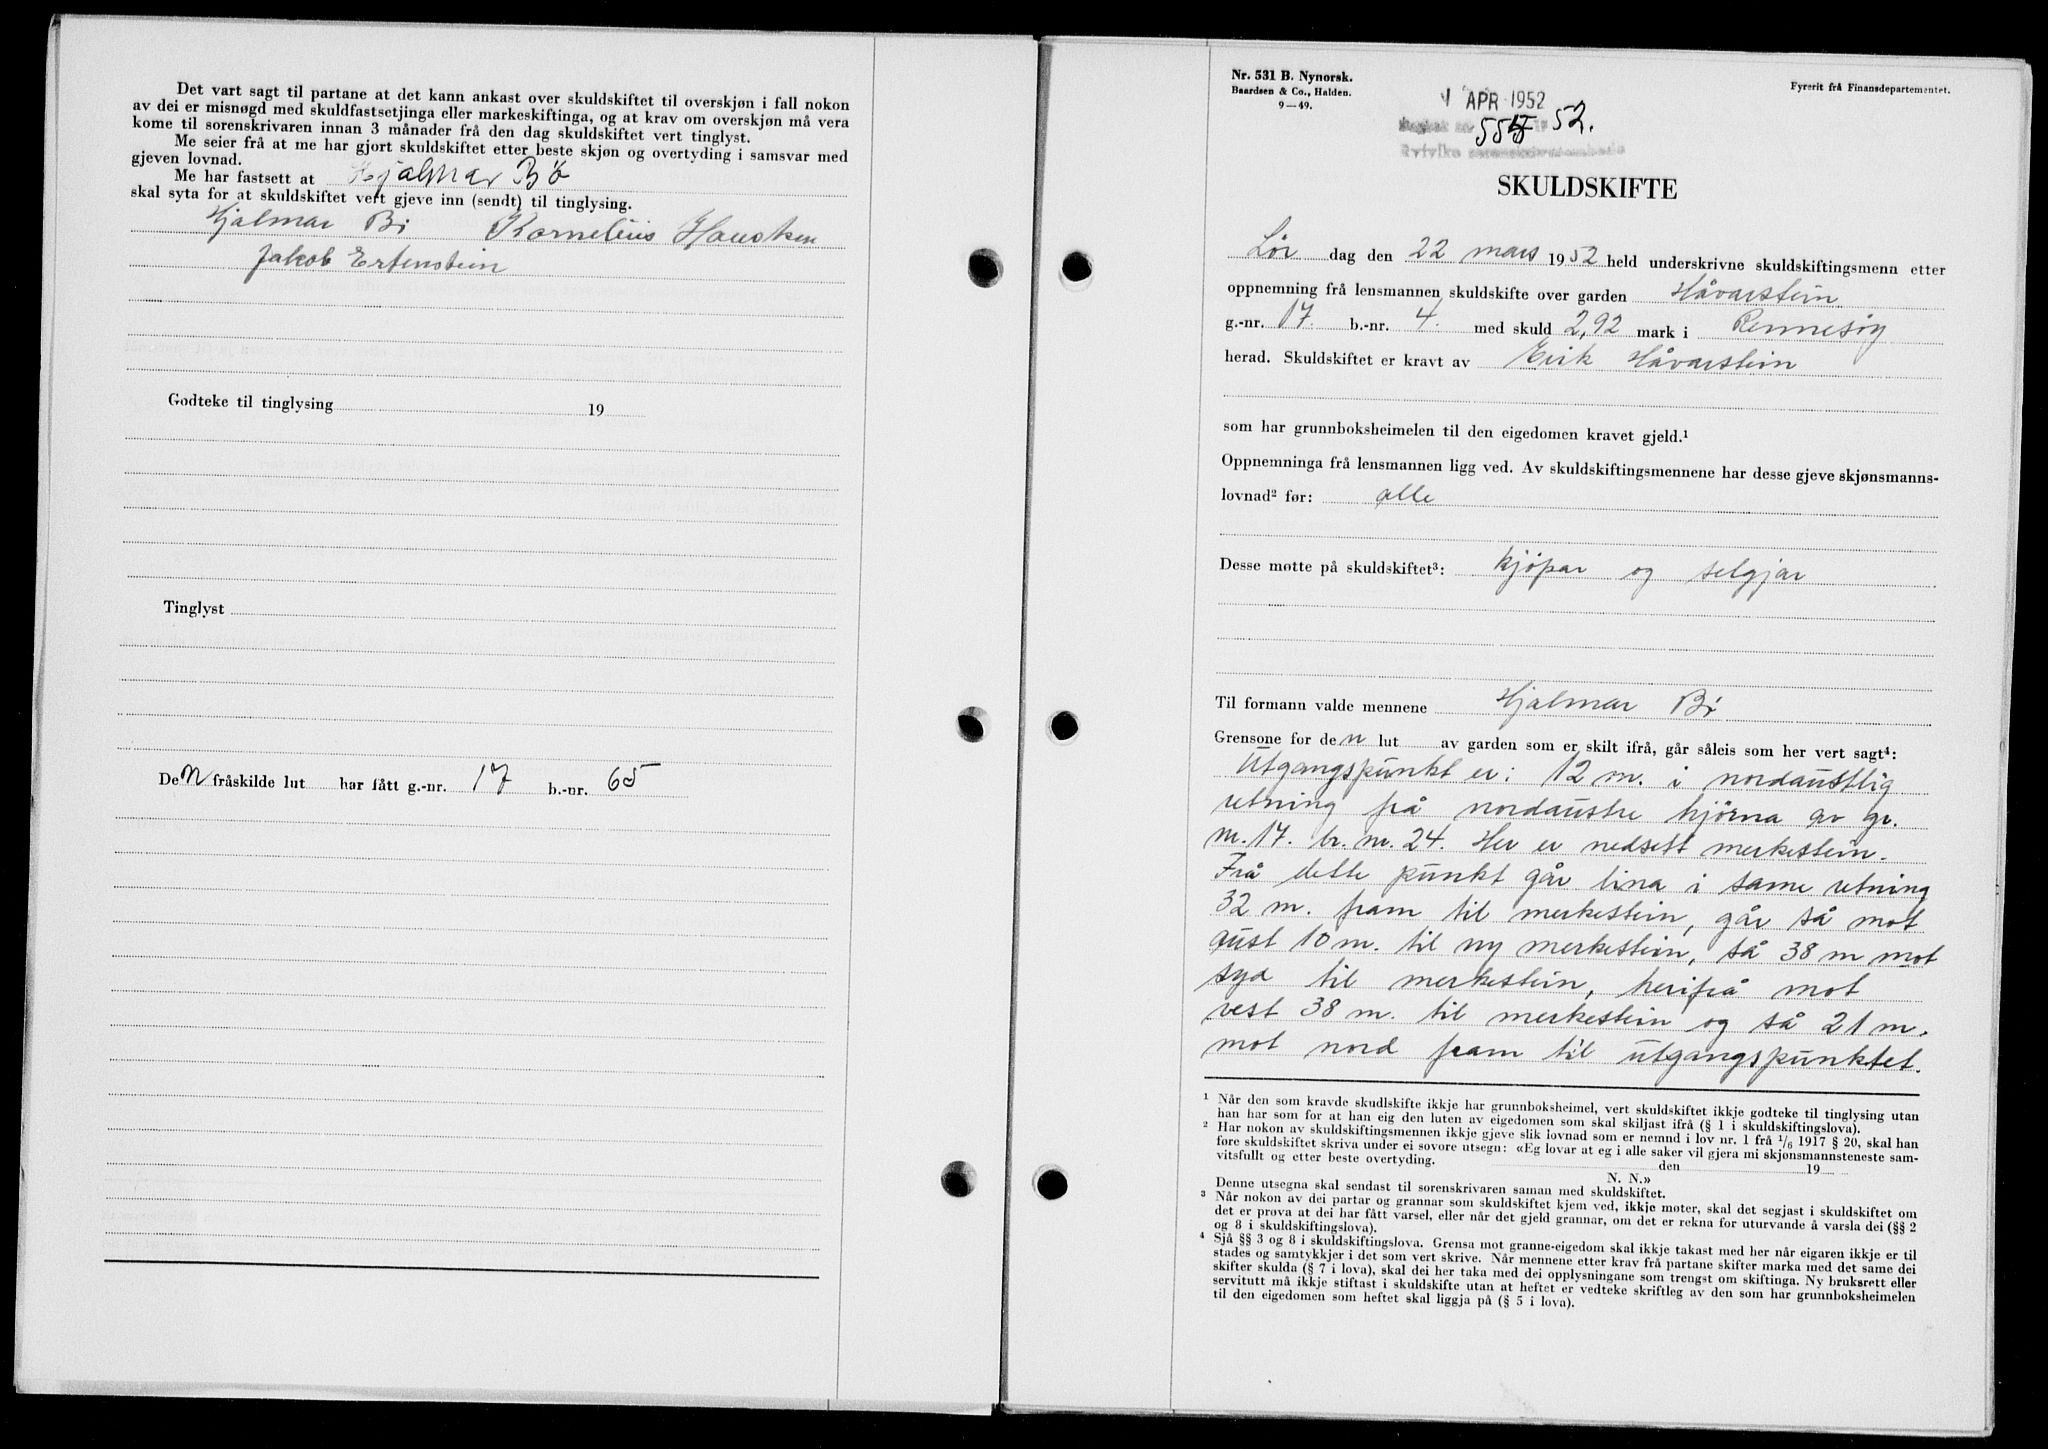 Det vart sagt til partane at det kann ankast over skuldskiftet til overskjøn i fall nokon
av dei er misnøgd med skuldfastsetjinga eller markeskiftinga, og at krav om overskjøn må vera
kome til sorenskrivaren innan 3 månader frå den dag skuldskiftet vert tinglyst.
Me seier frå at me har gjort skuldskiftet etter beste skjøn og overtyding i samsvar med
gjeven lovnad.
Me har fastsett at Hjalmar Bö
skal syta for at skuldskiftet vert gjeve inn (sendt) til tinglysing.
Hjalmar Bö Kornelius Hausken
Jakob Ertenstein
Godteke til tinglysing 19
Tinglyst
De n fråskilde lut har fått g.-nr. 17 b.-nr. 65
Nr. 531 B. Nynorsk.
Baardsen & Co., Halden.
9—49.
Fyrerit frå Finansdepartementet.
1 APR 1952
52.
SKULDSKIFTE
Lör dag den 22 mars 1952 held underskrivne skuldskiftingsmenn etter
oppnemning frå lensmannen skuldskifte over garden Håvarstein
g.-nr. 17. b.-nr. 4. med skuld 2,92 mark i Rennesöy
herad. Skuldskiftet er kravt av Erik Håvarstein
som har grunnboksheimelen til den eigedomen kravet gjeld.¹
Oppnemninga frå lensmannen ligg ved. Av skuldskiftingsmennene har desse gjeve skjønsmanns-
lovnad² før: alle
Desse møtte på skuldskiftet³: kjöpar og selgjar
Til formann valde mennene Hjalmar Bö
Grensone for de n lut av garden som er skilt ifrå, går såleis som her vert sagt⁴:
Utgangspunkt er: 12 m. i nordaustlig
retning frå nordaustre hjörna av gr.
nr. 17. br. nr. 24. Her er nedsett merkestein.
Frå dette punkt går lina i same retning
32 m. fram til merkestein, går så mot
aust 10 m. til ny merkestein, så 38 m mot
syd til merkestein, herifrå mot
vest 38 m. til merkestein og så 21 m.
mot nord fram til utgangspunktet.
¹ Når den som kravde skudlskifte ikkje har grunnboksheimel, vert skuldskiftet ikkje godteke til tinglysing utan
han har som for at han eig den luten av eigedomen som skal skiljast ifrå (§ 1 i skuldskiftingslova).
² Har nokon av skuldskiftingsmennen ikkje gjeve slik lovnad som er nemnd i lov nr. 1 frå 1/6 1917 § 20, skal han
føre skuldskiftet skriva under ei sovore utsegn: «Eg lovar at eg i alle saker vil gjera mi skjønsmannsteneste sam-
vitsfullt og etter beste overtyding. den 19
N. N.»
Denne utsegna skal sendast til sorenskrivaren saman med skuldskiftet.
³ Når nokon av dei partar og grannar som skuldskiftet kjem ved, ikkje møter, skal det segjast i skuldskiftet om
det er prova at dei har fått varsel, eller når det gjeld grannar, om det er rekna for uturvande å varsla dei (§§ 2
og 8 i skuldskiftingslova).
⁴ Sjå §§ 3 og 8 i skuldskiftingslova. Grensa mot granne-eigedom skal ikkje takast med her når eigaren ikkje er til
stades og samtykkjer i det som vert skrive. Når mennene etter krav frå partane skifter marka med det same dei
skifter skulda (§ 7 i lova), skal dei her taka med dei opplysningane som trengst om skiftinga. Ny bruksrett eller
servitutt må ikkje stiftast i skuldskifte utan at heftet er vedteke skriftleg av den som har grunnboksheimelen
til den eigedomen som heftet skal liggja på (§ 5 i lova).